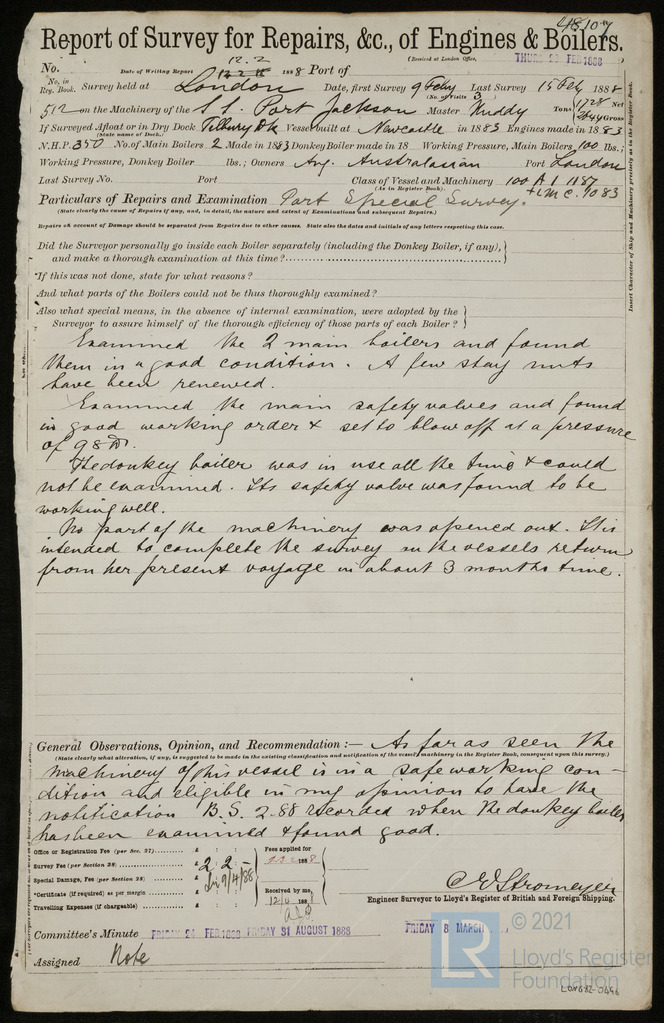 48107
Report of Survey for Repairs, &c., of Engines & Boilers.
(Received at London Office, THURS 23 FEB 1888
No. Date of Writing Report 12.2 1888 Port of
No. in Reg. Book. Survey held at London Date, first Survey 9 Feby Last Survey 15 Feby 1888
(No. of Visits 3)
512 on the Machinery of the S.S. Port Jackson Master Kuddy Tons 1728 Net 2644 Gross
If Surveyed Afloat or in Dry Dock Tilbury Dk Vessel built at Newcastle in 1883 Engines made in 1883
(State name of Dock.)
N.H.P. 350 No. of Main Boilers 2 Made in 1883 Donkey Boiler made in 18 Working Pressure, Main Boilers 100 lbs.;
Working Pressure, Donkey Boiler lbs.; Owners Ang. Australasian Port London
Last Survey No. Port Class of Vessel and Machinery 100 A 1 11 87
(As in Register Book). + LMC. 10 83
Particulars of Repairs and Examination Part Special Survey.
(State clearly the cause of Repairs if any, and, in detail, the nature and extent of Examinations and subsequent Repairs.)
Repairs on account of Damage should be separated from Repairs due to other causes. State also the dates and initials of any letters respecting this case.
Did the Surveyor personally go inside each Boiler separately (including the Donkey Boiler, if any),
and make a thorough examination at this time?
If this was not done, state for what reasons?
And what parts of the Boilers could not be thus thoroughly examined?
Also what special means, in the absence of internal examination, were adopted by the
Surveyor to assure himself of the thorough efficiency of those parts of each Boiler?
Insert Character of Ship and Machinery precisely as in the Register Book.
Examined the 2 main boilers and found
them in a good condition. A few stay nuts
have been renewed.
Examined the main safety valves and found
in good working order & set to blow off at a pressure
of 98 lbs.
The donkey boiler was in use all the time & could
not be examined. Its safety valve was found to be
working well.
No part of the machinery was opened out. It is
intended to complete the survey on the vessels return
from her present voyage in about 3 months time.
General Observations, Opinion, and Recommendation:— As far as seen the
(State clearly what alteration, if any, is suggested to be made in the existing classification and notification of the vessel's machinery in the Register Book, consequent upon this survey.)
machinery of this vessel is in a safe working con-
dition and eligible in my opinion to have the
notification B.S. 2.88 recorded when the donkey boiler
has been examined & found good.
Office or Registration Fee (per Sec. 27) £ : :
Survey Fee (per Section 28) £ 2 : 2 : -
Special Damage, Fee (per Section 28) £
*Certificate (if required) as per margin £
Travelling Expenses (if chargeable) £
9/4/88
Fees applied for
1888
Received by me,
12/4 188
C E Stromeyer
Engineer Surveyor to Lloyd's Register of British and Foreign Shipping.
Committee's Minute FRIDAY 24 FEB 1888 FRIDAY 31 AUGUST 1888 FRIDAY 8 MARCH
Assigned Note
LR
© 2021
Lloyd's Register
Foundation